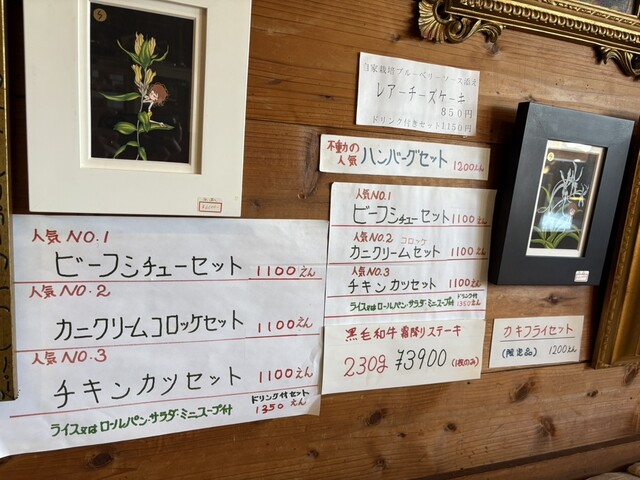 人気NO.1
ビーフシチューセット 1100えん
人気NO.2
カニクリームコロッケセット 1100えん
人気NO.3
チキンカツセット 1100えん
ライス又はロールパン・サラダ・ミニスープ付
ドリンク付セット
1350えん
自家栽培ブルーベリーソース添え
レアーチーズケーキ
850円
ドリンク付きセット1150円
不動の
人気 ハンバーグセット 1200えん
人気NO.1
ビーフシチューセット 1100えん
人気NO.2 コロッケ
カニクリームセット 1100えん
人気NO.3
チキンカツセット 1100えん
ライス又はロールパン・サラダ・ミニスープ付
ドリンク付
1350えん
黒毛和牛霜降りステーキ
230g ¥3900 (1枚のみ)
カキフライセット
(限定品) 1200えん